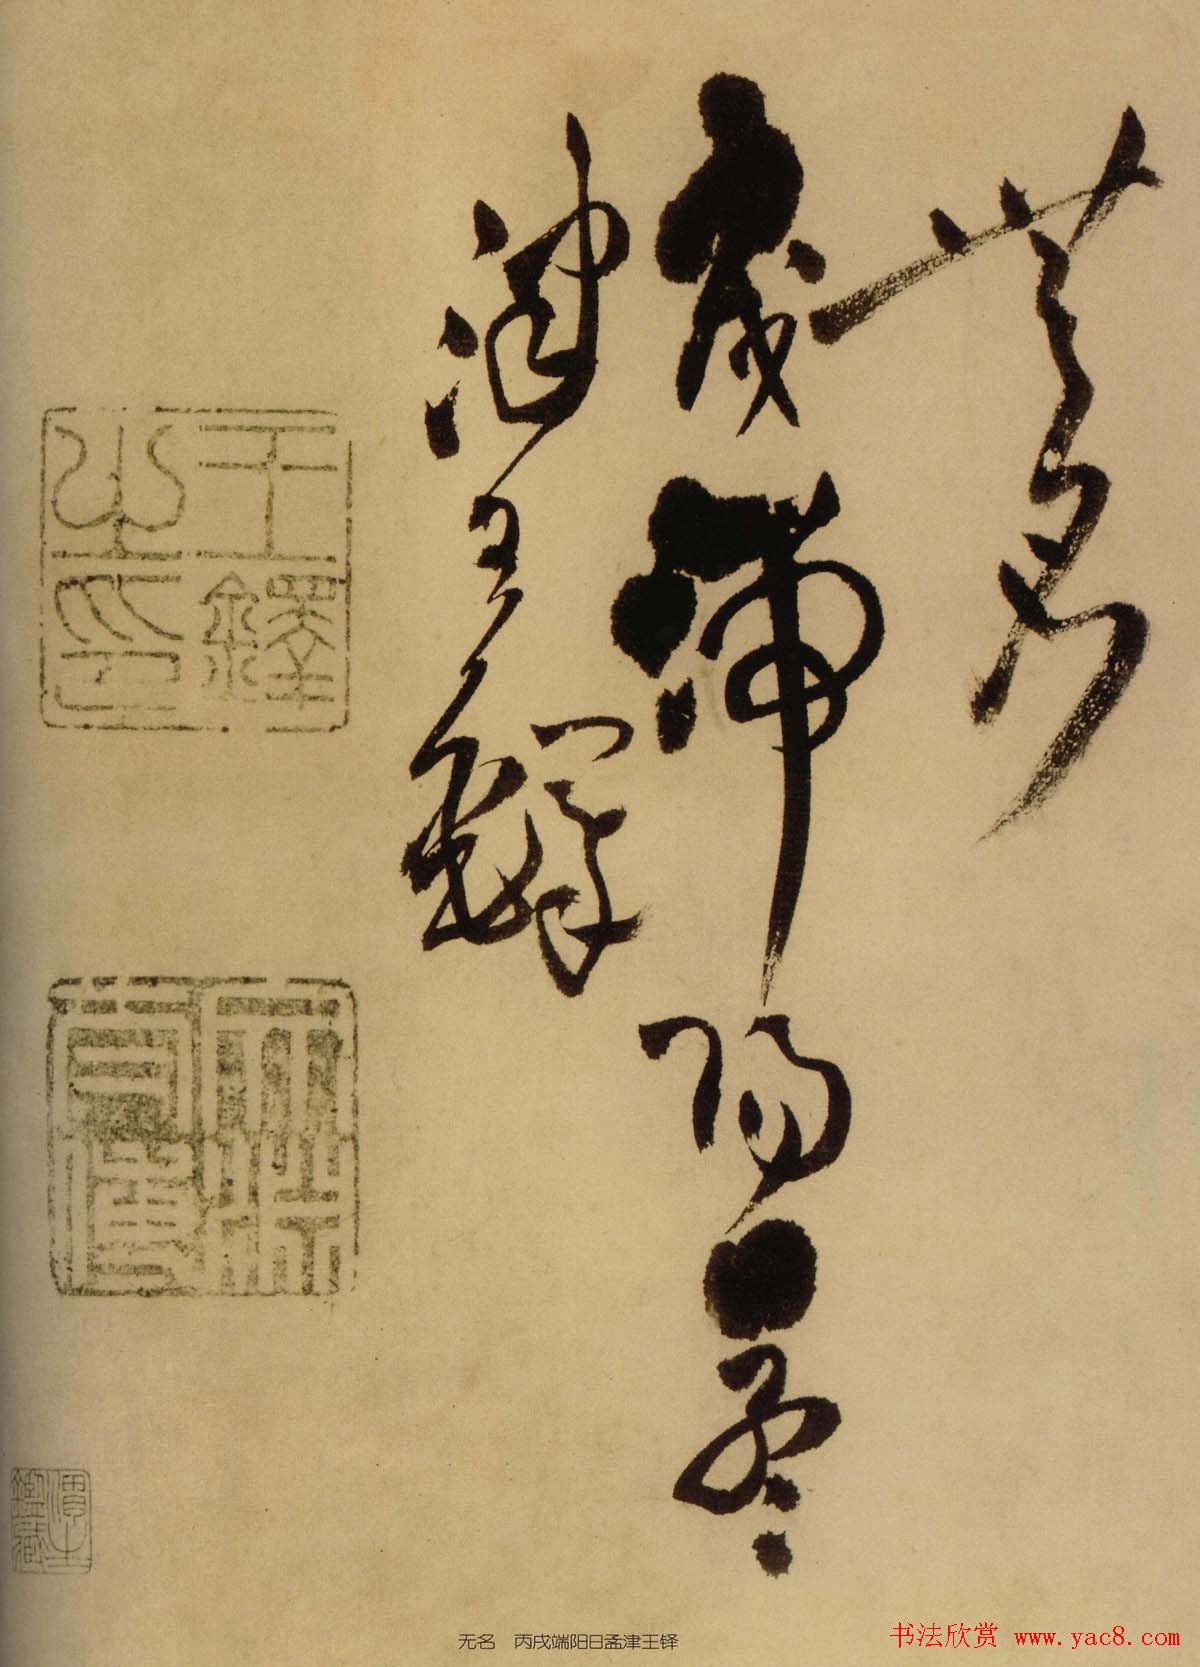 無名
丙戌端陽日孟
津王鐸
王鐸之印
无名　丙戌端阳日孟津王铎
书法欣赏 www.yac8.com